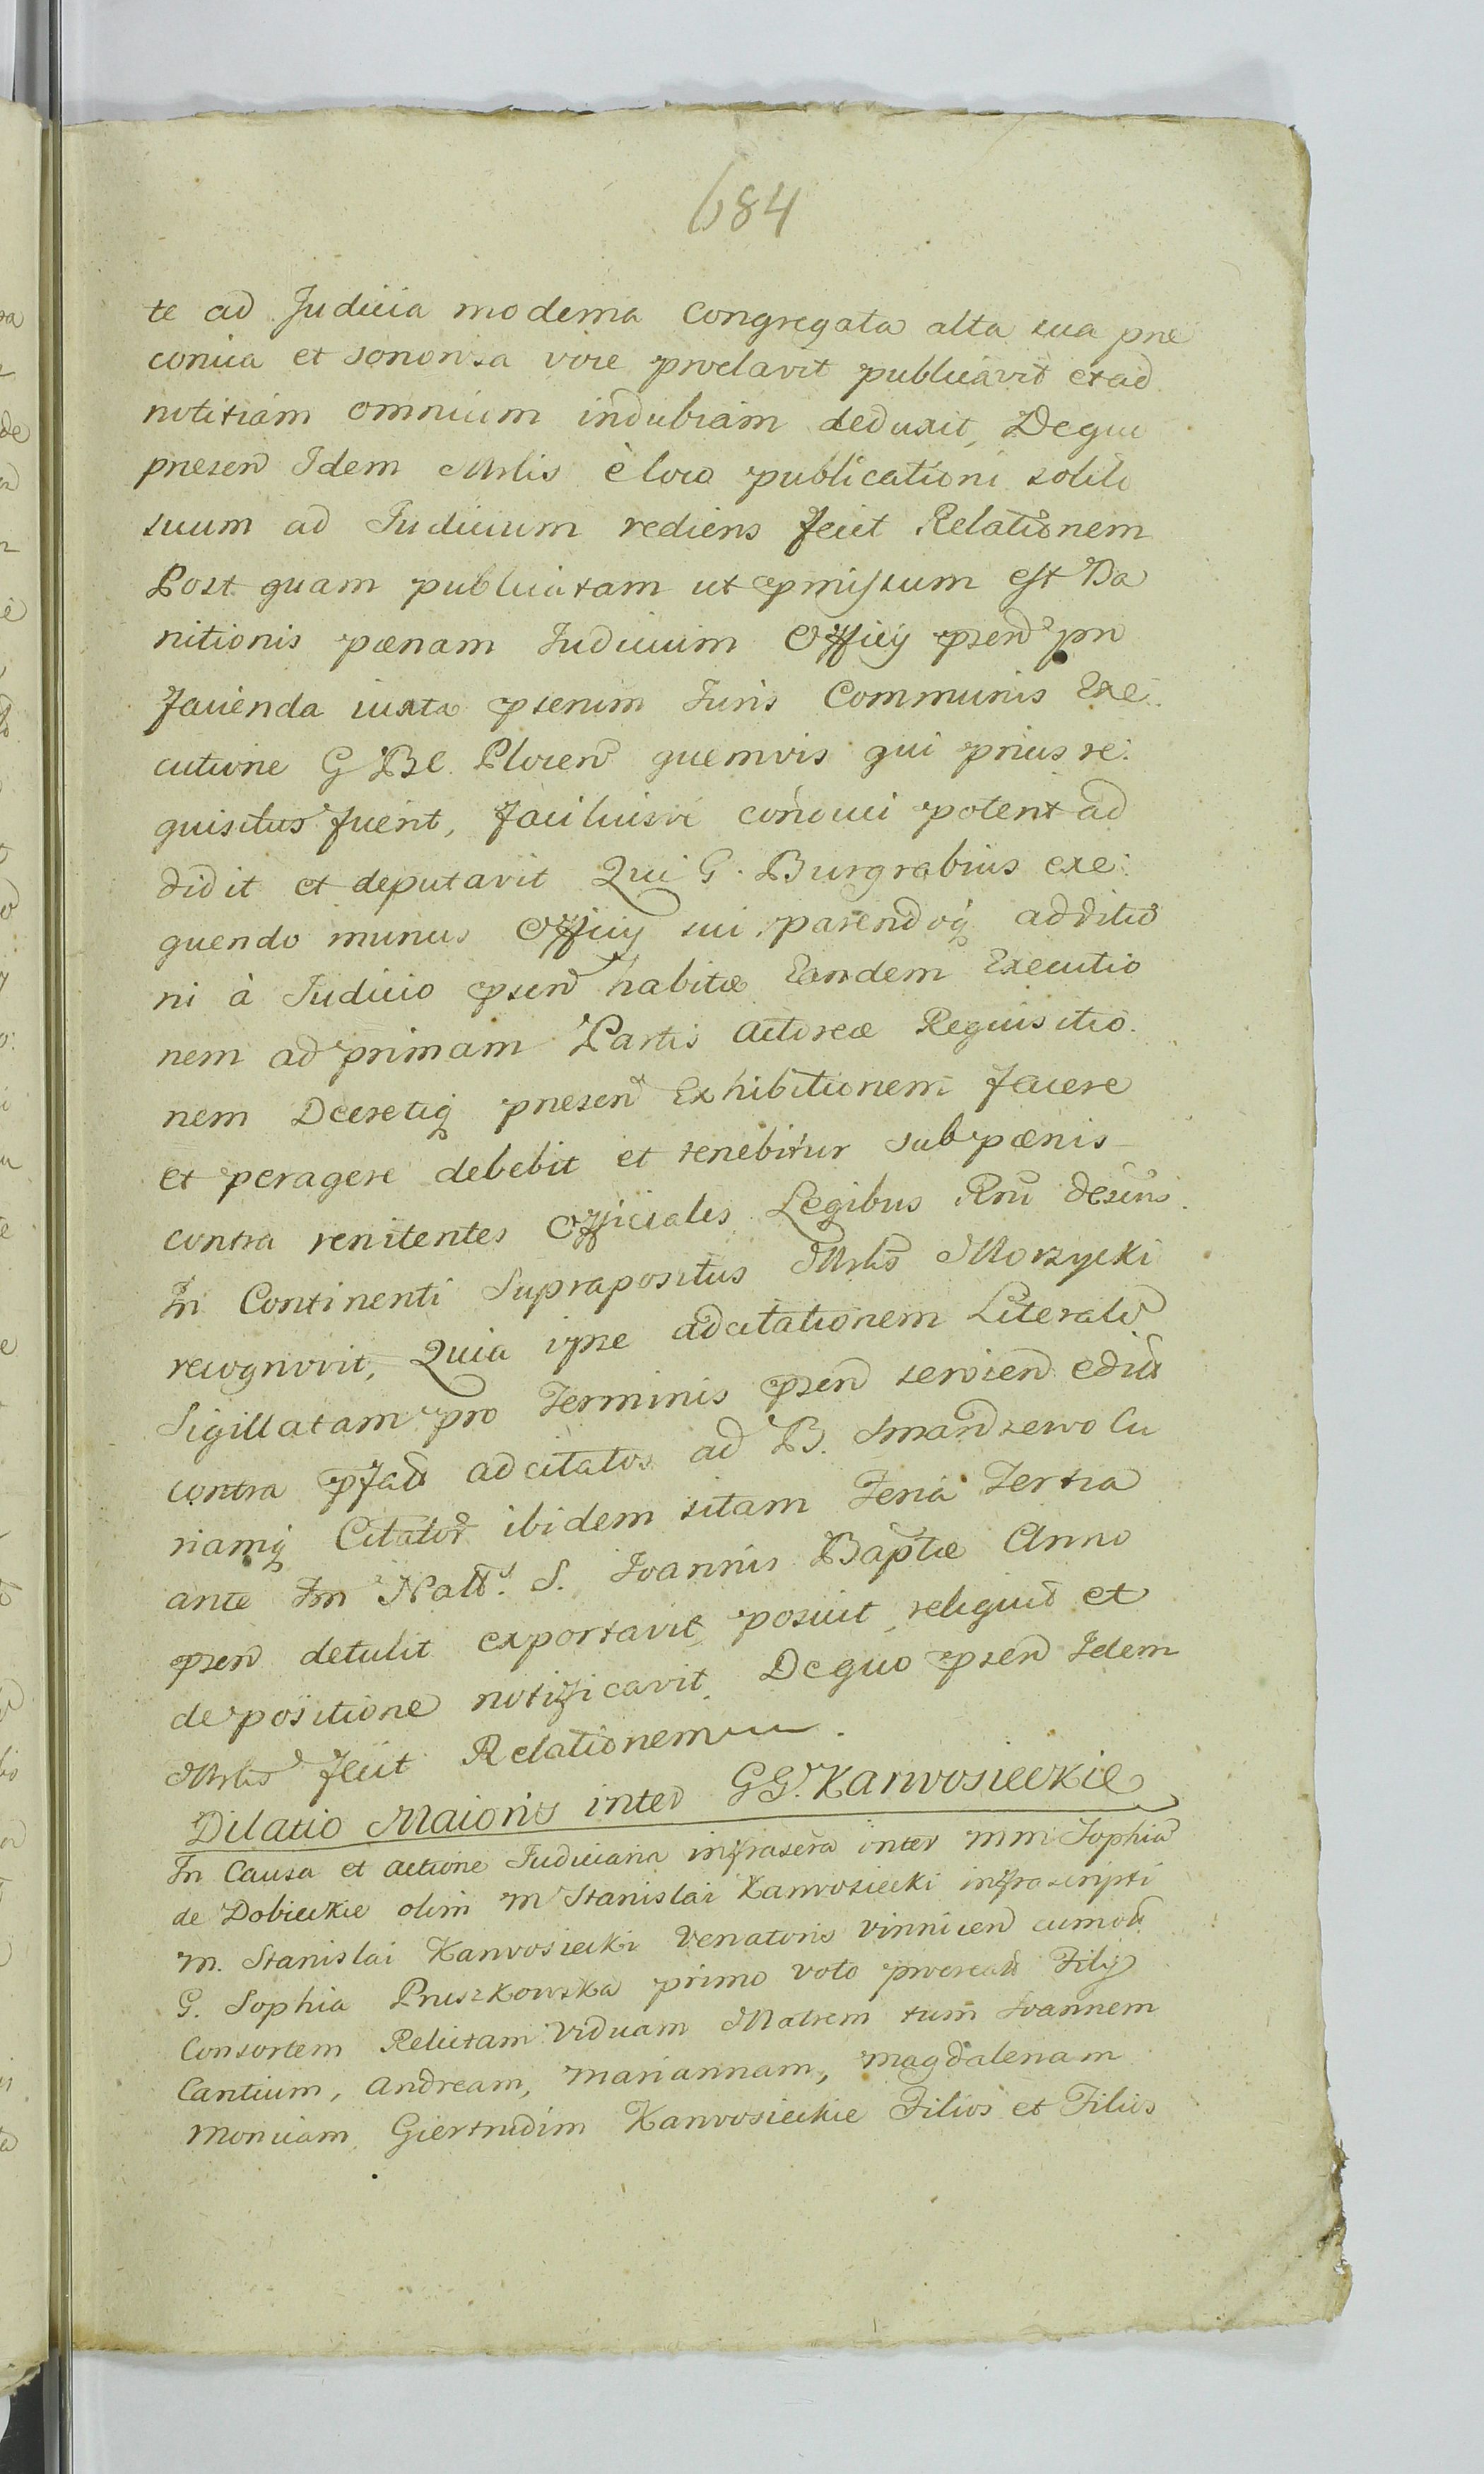 684
te ad Judicia moderna congregata alta sua præ
conica et sonorosa voce proclavit publicavit et ad
notitiam omnium indubiam deduxit, De quo
præsen Idem Mrlis è loco publicationi solito
suum ad Judicium rediens fecit Relationem
Post quam publicatam ut præmissum est Ba
nitionis pœnam Judicium Officij præsen pro
facienda iuxta præscrium Juris Communis Exe
cutione G BC. Plocen quemvis qui prius re:
quisitus fuerit, faciliusve conduci poterit ad
didit et deputavit Qui G. Burgrabius exe:
quendo munus Officij sui, parendoq additio
ni à Judicio præsen habitæ Eandem Executio
nem ad primam Partis Actoreæ Requisitio
nem Decretiq præsen Exhibitionem facere
et peragere debebit et tenebitur sub pœnis
contra renitentes Officiales Legibus Rni descris.
In Continenti Suprapositus Mrlis Morzycki
recognovit, Quia ipse adcitationem Literalē
Sigillatam pro Terminis præsen servien editā
contra præfatō adcitatos ad B. Smardzewo Cu
riamq Citatoꝝ ibidem sitam Feria Tertia
ante Fm Natt. S. Joannis Baptæ Anno
præsen detulit exportavit, posuit, reliquit et
de positione notificavit. De quo præsen Idem
Mrlis fecit Relationem.
Dilatio Maioris inter GG. Karwosieckie
In Causa et Actione Judiciaria infrascra inter MM Sophiā
de Dobieckie olim M Stanislai Karwosiecki infrascripti
M. Stanislai Karwosiecki Venatoris Vinnicen cum oli
G. Sophia Pruszkowska primo voto procreati Filij
Consortem Relictam Viduam Matrem tum Joannem
Cantium, Andream, Mariannam, Magdalenam
Monicam, Giertrudim Karwosieckie Filios et Filias